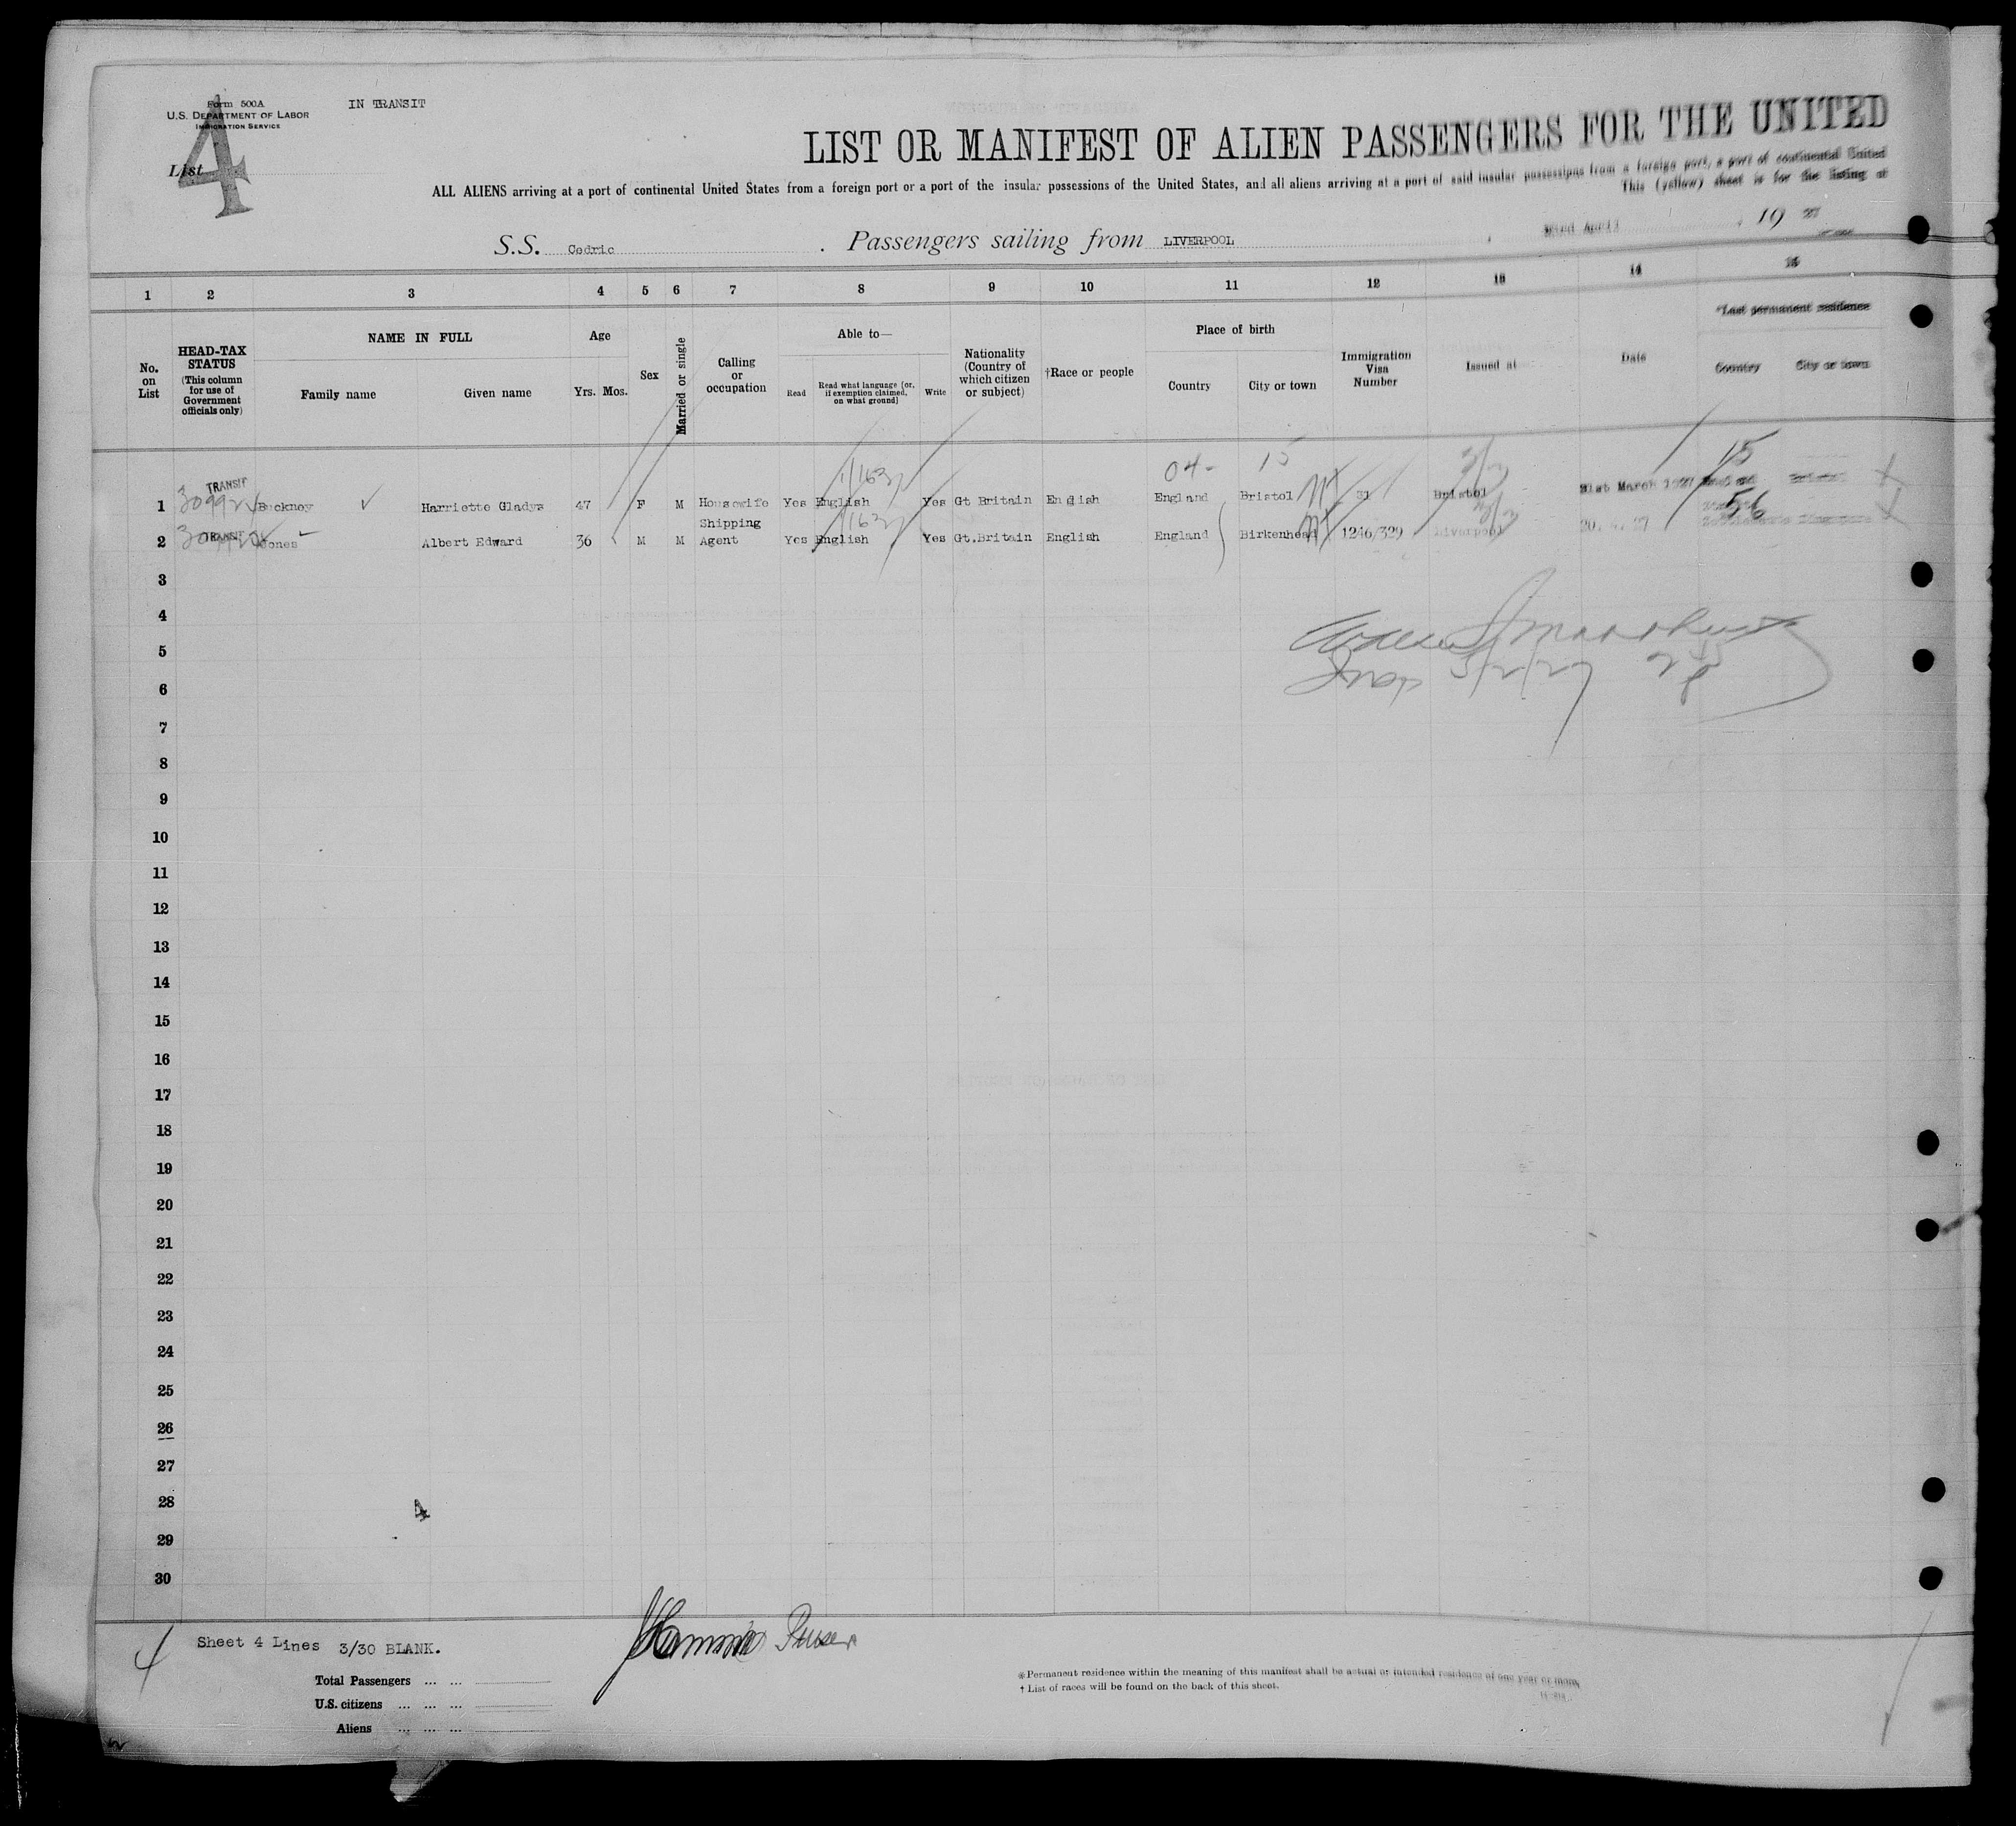 Form 500A
U.S. DEPARTMENT OF LABOR
IMMIGRATION SERVICE
IN TRANSIT
4
List
LIST OR MANIFEST OF ALIEN PASSENGERS FOR THE UNITED
ALL ALIENS arriving at a port of continental United States from a foreign port or a port of the insular possessions of the United States, and all aliens arriving at a port of said insular possessions from a foreign port, a port of continental United
This (yellow) sheet is for the listing of
S.S. Cedric . Passengers sailing from LIVERPOOL , April , 19 27
1 2 3 4 5 6 7 8 9 10 11 12 13 14 15
No. on List
HEAD-TAX STATUS (This column for use of Government officials only)
NAME IN FULL
Family name Given name
Age
Yrs. Mos.
Sex
Married or single
Calling or occupation
Able to—
Read
Read what language [or, if exemption claimed, on what ground]
Write
Nationality (Country of which citizen or subject)
†Race or people
Place of birth
Country City or town
Immigration Visa Number
Issued at
Date
*Last permanent residence
Country City or town
1/163 04- 15 15
TRANSIT
1 Harriette Gladys 47 F M Housewife Yes English Yes Gt Britain English England Bristol 31 Bristol 31st March 1927
56
1/163
TRANSIT
2 Jones Albert Edward 36 M M Shipping Agent Yes English Yes Gt.Britain English England Birkenhead 1246/329 Liverpool
3
4
5
5/2/27
6
7
8
9
10
11
12
13
14
15
16
17
18
19
20
21
22
23
24
25
26
27
28
4
29
30
4
Sheet 4 Lines 3/30 BLANK.
Purser
Total Passengers ... ...
U.S. citizens ... ... ...
Aliens ... ... ...
*Permanent residence within the meaning of this manifest shall be actual or intended residence of one year or more.
† List of races will be found on the back of this sheet.